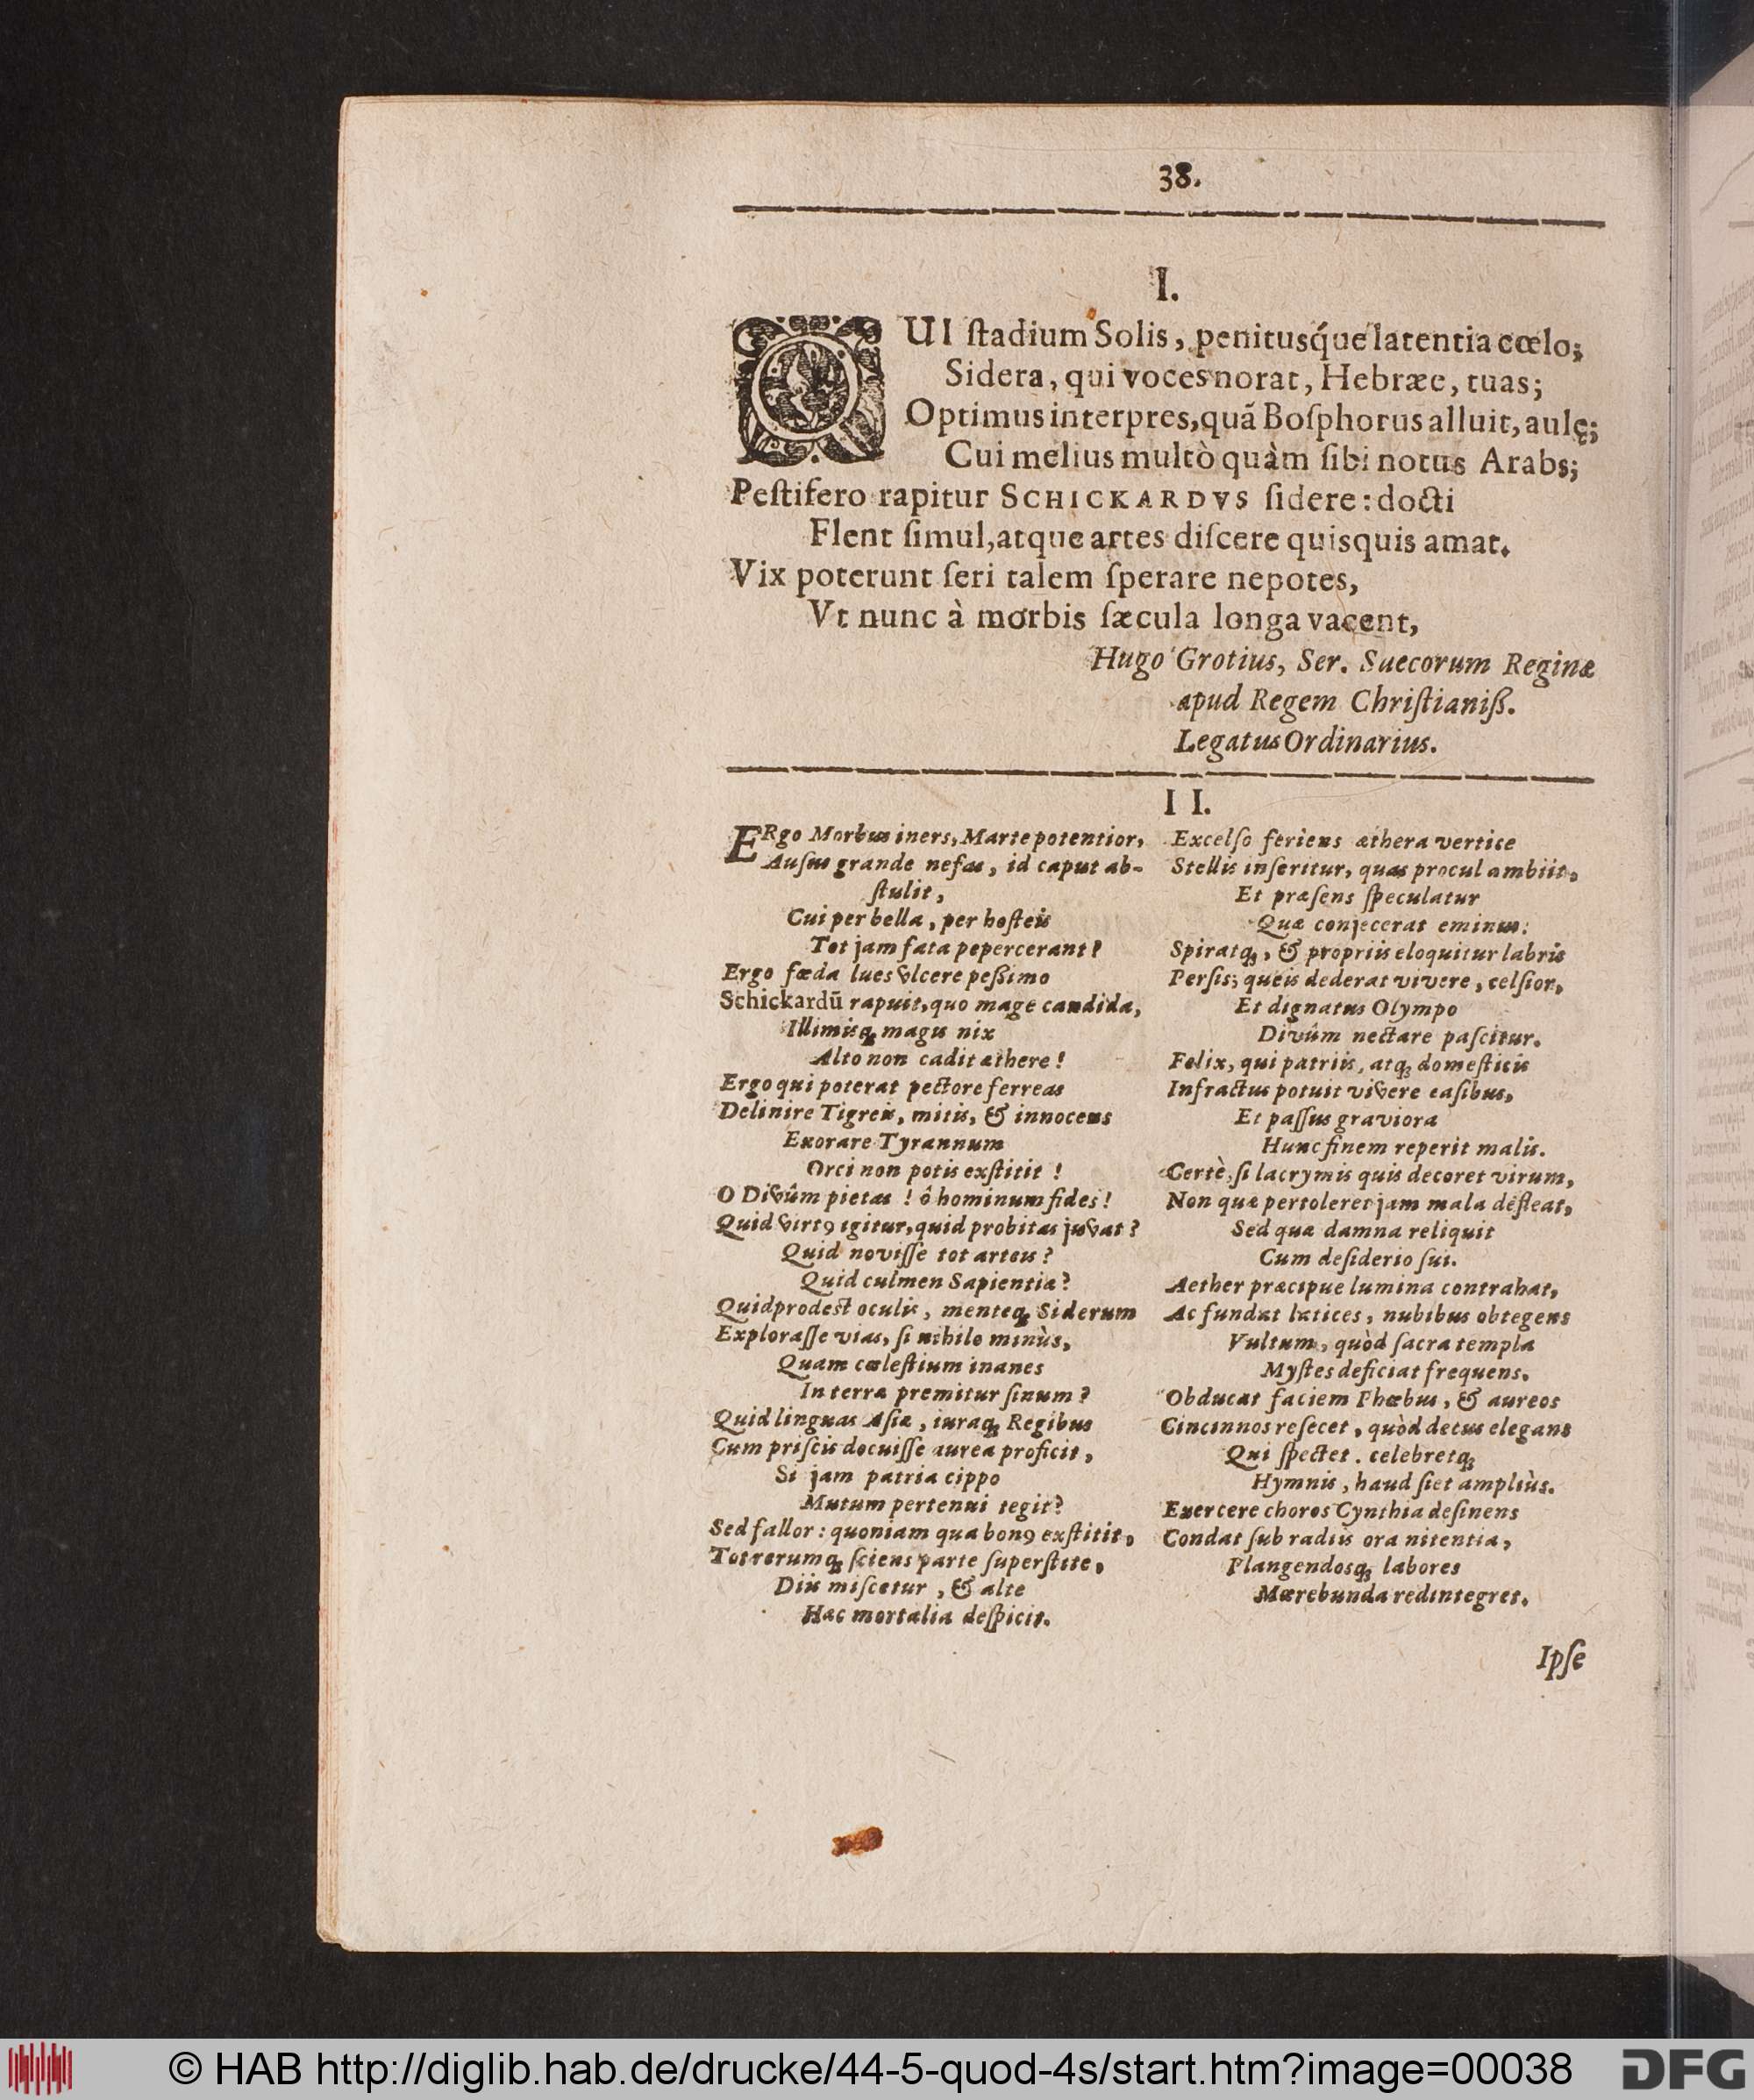 38.
I.
QUI ſtadium Solis, penitusq́ue latentia cœlo;
Sidera, qui voces norat, Hebræe, tuas;
Optimus interpres, quã Boſphorus alluit, aulę;
Cui melius multò quàm ſibi notus Arabs;
Peſtifero rapitur SCHICKARDVS ſidere: docti
Flent ſimul, atque artes diſcere quisquis amat.
Vix poterunt ſeri talem ſperare nepotes,
Vt nunc à morbis ſæcula longa vacent,
Hugo Grotius, Ser. Suecorum Reginæ
apud Regem Chriſtianiß.
Legatus Ordinarius.
II.
ERgo Morbus iners, Marte potentior,
Auſus grande nefas, id caput ab-
ſtulit,
Cui per bella, per hosteis
Tot jam fata pepercerant?
Ergo fœda lues vlcere peßimo
Schickardū rapuit, quo mage candida,
Illimisq́ magis nix
Alto non cadit æthere!
Ergo qui poterat pectore ferreas
Delinire Tigreis, mitis, & innocens
Exorare Tyrannum
Orci non potis exſtitit!
O Divûm pietas! ô hominum fides!
Quid virtꝰ igitur, quid probitas juvat?
Quid noviſſe tot arteis?
Quid culmen Sapientiæ?
Quid prodest oculis, menteq́ Siderum
Exploraſſe vias, ſi nihilo minùs,
Quam cœleſtium inanes
In terra premitur ſinum?
Quid linguas Aſiæ, iuraq́ Regibus
Cum priſcis docuiſſe aurea proficit,
Si jam patria cippo
Mutum pertenui tegit?
Sed fallor: quoniam qua bonꝰ exſtitit,
Tot rerumq́ ſciens parte ſuperſtite,
Diis miſcetur, & alte
Hac mortalia deſpicit.
Excelſo feriens æthera vertice
Stellis inſeritur, quas procul ambiit,
Et præſens ſpeculatur
Quæ conjecerat eminus:
Spiratq́, & propriis eloquitur labris
Perſis; queis dederat vivere, celſior,
Et dignatus Olympo
Divûm nectare paſcitur.
Felix, qui patriis, atq́ domeſticis
Infractus potuit vivere caſibus,
Et paſſus graviora
Hunc finem reperit malis.
Certè, ſi lacrymis quis decoret virum,
Non quæ pertoleret jam mala defleat,
Sed quæ damna reliquit
Cum deſiderio ſui.
Aether præcipue lumina contrahat,
Ac fundat latices, nubibus obtegens
Vultum, quòd ſacra templa
Myſtes deficiat frequens.
Obducat faciem Phœbus, & aureos
Cincinnos reſecet, quòd decus elegans
Qui ſpectet. celebretq́
Hymnis, haud ſiet ampliùs.
Exercere choros Cynthia deſinens
Condat ſub radiis ora nitentia,
Plangendosq́ labores
Mœrebunda redintegret.
Ipſe
© HAB http://diglib.hab.de/drucke/44-5-quod-4s/start.htm?image=00038
DFG